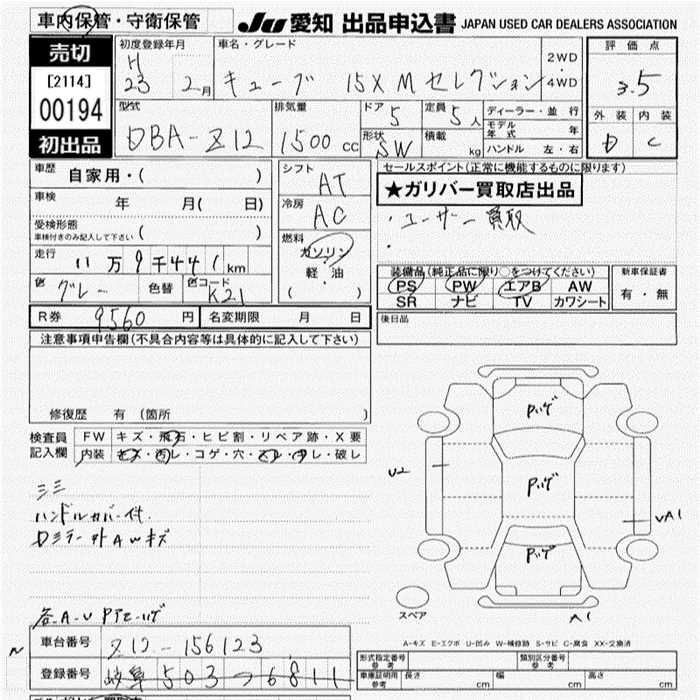 車内保管・守衛保管
JU 愛知 出品申込書 JAPAN USED CAR DEALERS ASSOCIATION
売切
[2114]
00194
初出品
初度登録年月
H
23 2月
車名・グレード
キューブ 15X M セレクション
2WD
4WD
評価点
3.5
外装 内装
D C
型式
DBA-Z12
排気量
1500 cc
ドア
5
定員
5人
形状
SW
積載
kg
ディーラー・並行
モデル年式 年
ハンドル 左・右
車歴
自家用・( )
車検
年 月( 日)
受検形態
車検付きのみ記入して下さい ( )
走行
11万9千441km
色
グレー
色替
色コード
K21
シフト
AT
冷房
AC
燃料
ガソリン
軽・油
( )
セールスポイント(正常に機能するものに限ります)
★ガリバー買取店出品
・ユーザー買取
・
装備品(純正品に限り○をつけてください)
PS PW エアB AW
SR ナビ TV カワシート
新車保証書
有・無
R券 9560円 名変期限 月 日
後日品
注意事項申告欄(不具合内容等は具体的に記入して下さい)
修復歴 有(箇所 )
検査員
記入欄
FW キズ・飛石・ヒビ割・リペア跡・X要
内装 キズ・汚レ・コゲ・穴・スレ・切レ・破レ
ミミ
ハンドルカバー付.
Dミラー外AWキズ
各A-U PアモールG
Pルーゲ
Pルーゲ
Pルーゲ
U2
UA1
A1
スペア
A-キズ E-エクボ U-凹み W-補修跡 S-サビ C-腐食 XX-交換済
車台番号 Z12-156123
登録番号 岐阜503つ6811
形式指定番号
参考
類別区分番号
参考
車庫証明用
参考
長さ cm 幅 cm 高さ cm